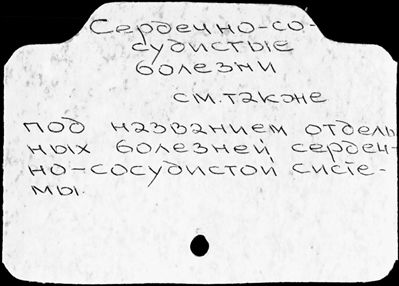 Сердечно-со-
судистые
болезни
см. также
под названием отдель
ных болезней сердеч-
но-сосудистой систе-
мы.